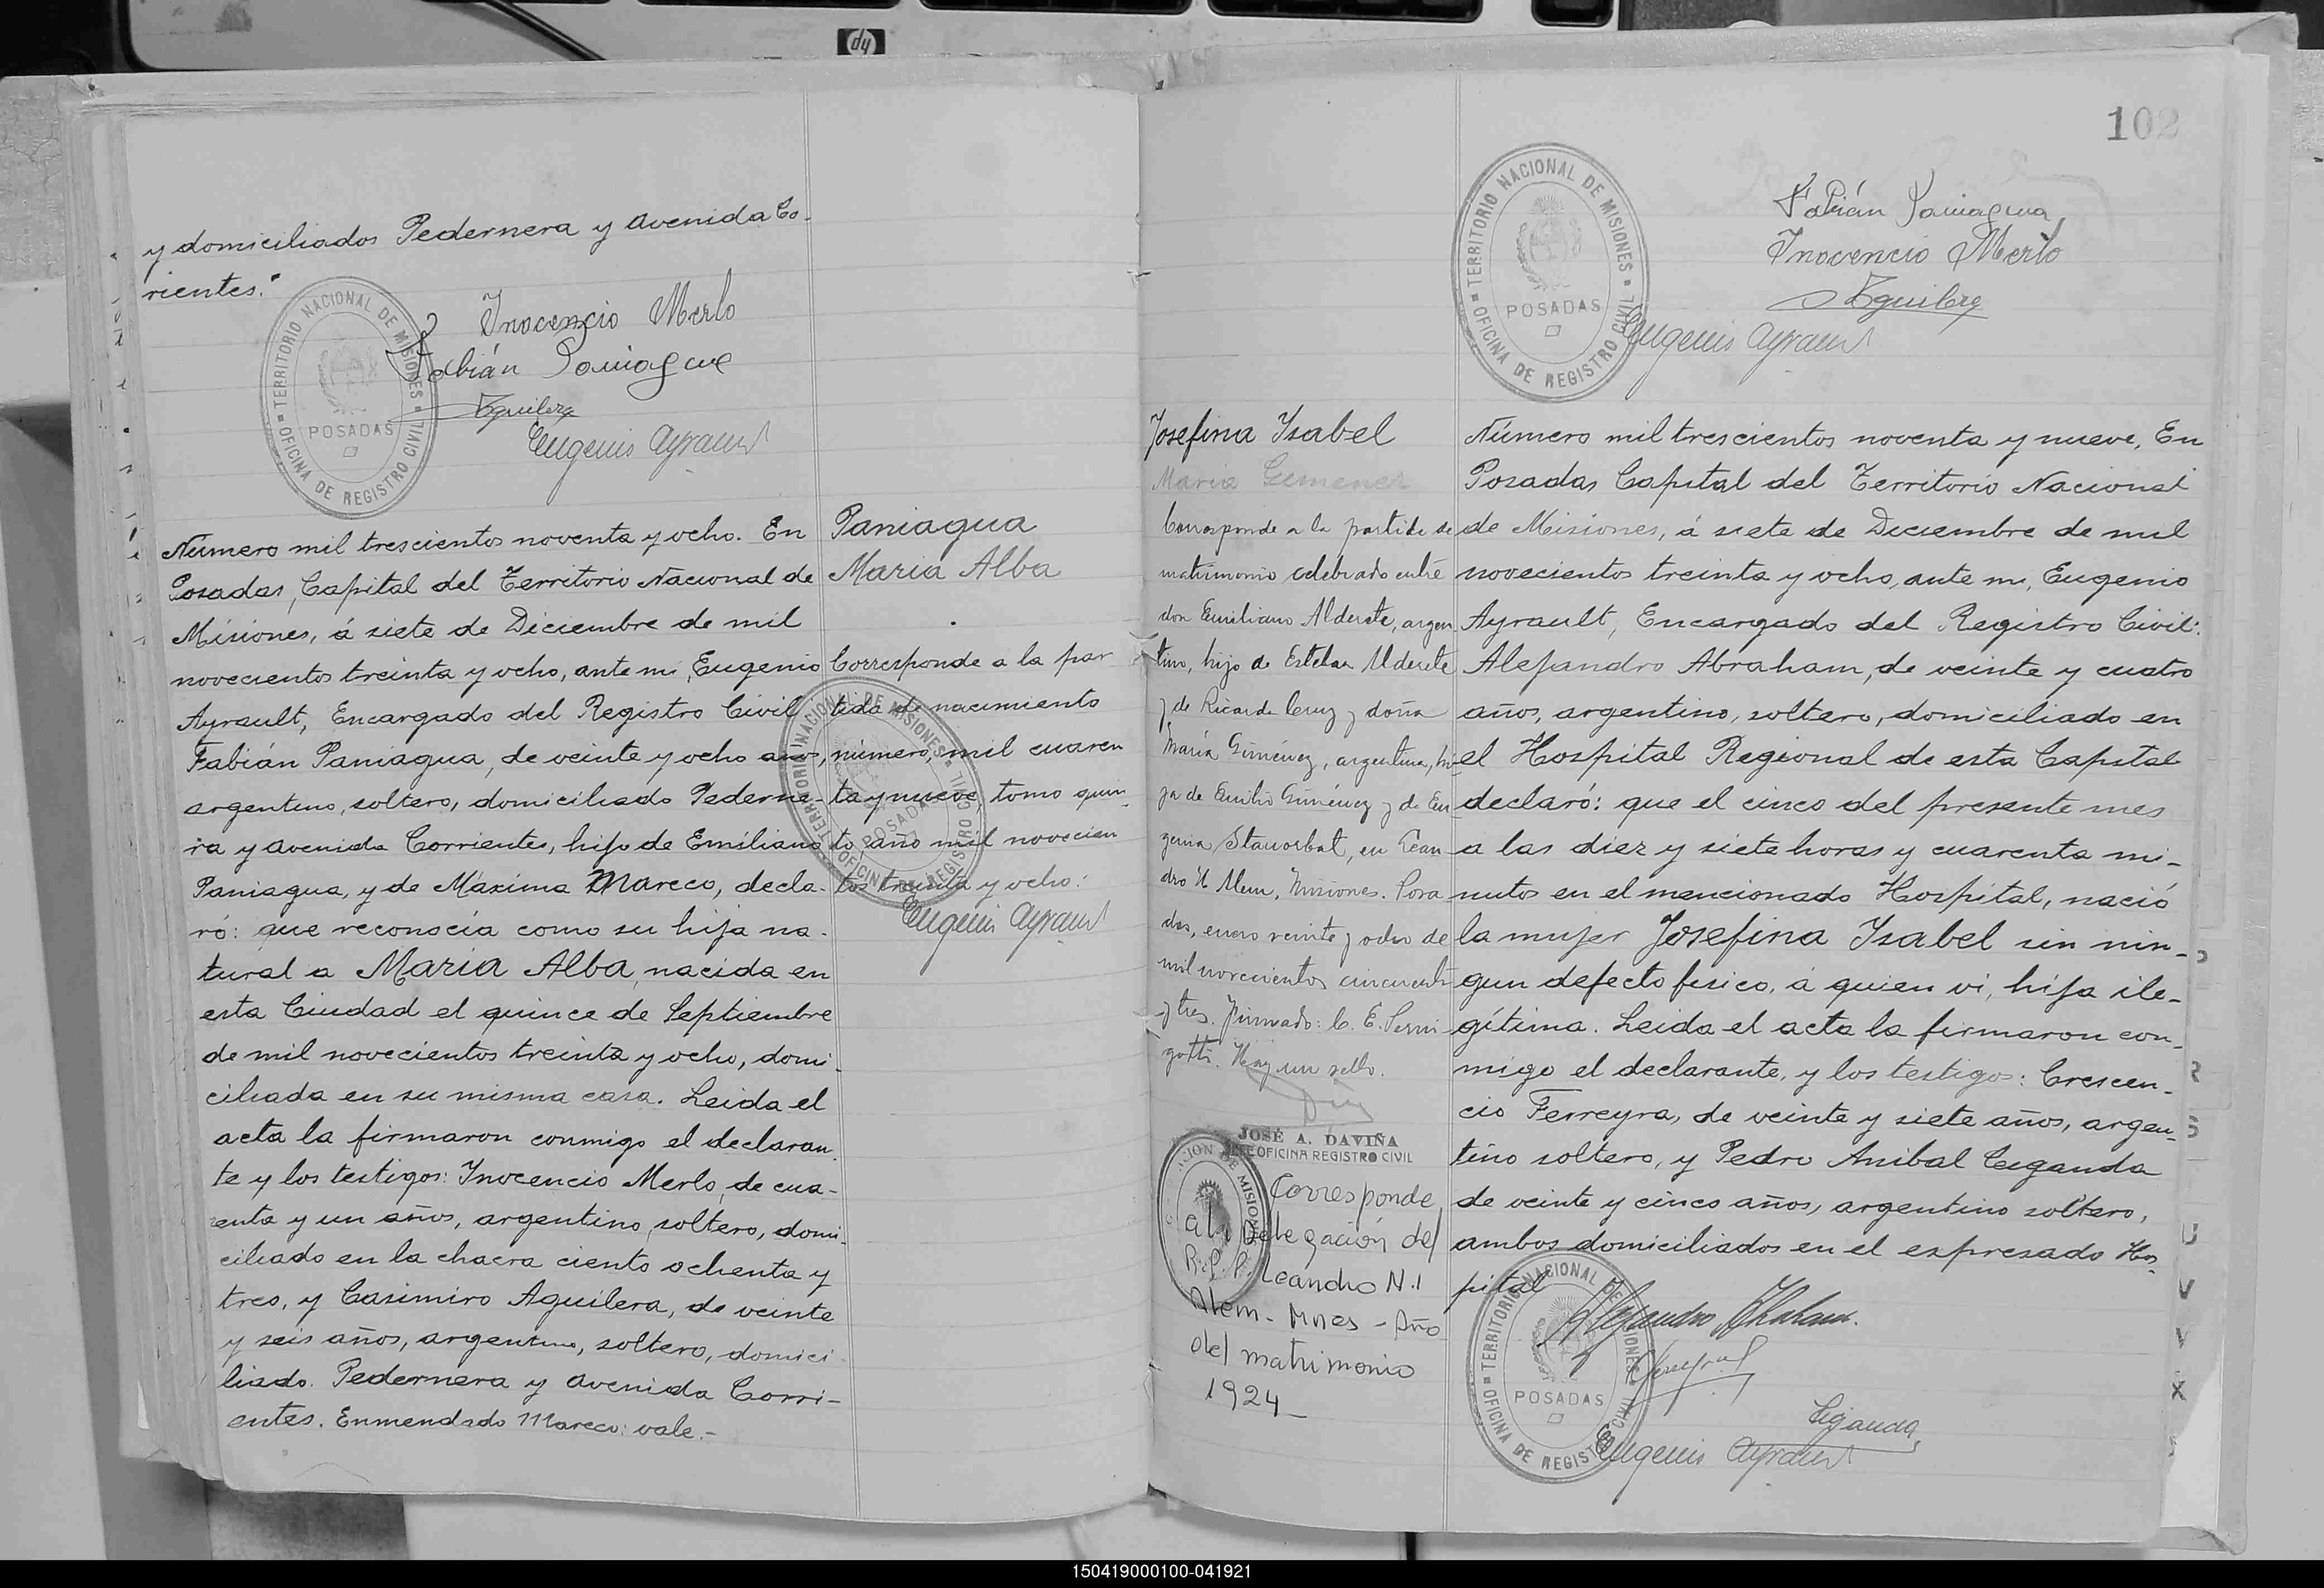 y domiciliados Pedernera y Avenida Co-
rrientes."
TERRITORIO NACIONAL DE MISIONES
POSADAS
OFICINA DE REGISTRO CIVIL
Inocencio Merlo
Fabián Paniagua
Aguilera
Eugenio Ayrault
Número mil trescientos noventa y ocho. En
Posadas, Capital del Territorio Nacional de
Misiones, á siete de Diciembre de mil
novecientos treinta y ocho, ante mi, Eugenio
Ayrault, Encargado del Registro Civil
Fabián Paniagua, de veinte y ocho años,
argentino, soltero, domiciliado Pederne-
ra y Avenida Corrientes, hijo de Emiliano
Paniagua, y de Máxima Mareco, decla-
ró: que reconocía como su hija na-
tural a Maria Alba, nacida en
esta Ciudad el quince de Septiembre
de mil novecientos treinta y ocho, domi-
ciliada en su misma casa. Leida el
acta la firmaron conmigo el declaran-
te y los testigos: Inocencio Merlo, de cua-
renta y un años, argentino, soltero, domi-
ciliado en la chacra ciento ochenta y
tres, y Casimiro Aguilera, de veinte
y seis años, argentino, soltero, domici-
liado Pedernera y Avenida Corri-
entes. Enmendado Mareco: vale.-
Paniagua
Maria Alba
Corresponde a la par
tida de nacimiento
número, mil cuaren
ta y nueve, tomo quin
to año mil novecien
tos treinta y ocho.
TERRITORIO NACIONAL DE MISIONES
POSADAS
OFICINA DE REGISTRO CIVIL
Eugenio Ayrault
102
TERRITORIO NACIONAL DE MISIONES
POSADAS
OFICINA DE REGISTRO CIVIL
Fabián Paniagua
Inocencio Merlo
Aguilera
Eugenio Ayrault
Josefina Isabel
Maria Gimenez
Corresponde a la partida de
matrimonio celebrado entre
don Emiliano Alderete, argen
tino, hijo de Esteban Alderete
y de Ricarda Cruz y doña
María Giménez, argentina, hi
ja de Emilio Giménez y de Eu
genia, en Lean
dro N. Alem, Misiones. Posa
das, enero veinte y ocho de
mil novecientos cincuenta
y tres. Firmado: C. E.
Hay un sello.
JOSÉ A. DAVIÑA
JEFE OFICINA REGISTRO CIVIL
Corresponde
a la Delegación del
R.P.P. Leandro N.
Alem - Mnes - Año
del matrimonio
1924 -
Número mil trescientos noventa y nueve. En
Posadas Capital del Territorio Nacional
de Misiones, á siete de Diciembre de mil
novecientos treinta y ocho, ante mi, Eugenio
Ayrault, Encargado del Registro Civil:
Alejandro Abraham, de veinte y cuatro
años, argentino, soltero, domiciliado en
el Hospital Regional de esta Capital
declaró: que el cinco del presente mes
a las diez y siete horas y cuarenta mi-
nutos en el mencionado Hospital, nació
la mujer Josefina Isabel sin nin-
gun defecto fisico, á quien vi, hija ile-
gítima. Leida el acta la firmaron con-
migo el declarante, y los testigos: Crescen-
cio Ferreyra, de veinte y siete años, argen-
tino soltero, y Pedro Anibal Ciganda
de veinte y cinco años, argentino soltero,
ambos domiciliados en el expresado Hos-
pital
TERRITORIO NACIONAL DE MISIONES
POSADAS
OFICINA DE REGISTRO CIVIL
Alejandro Abraham.
Ciganda
Eugenio Ayrault
150419000100-041921